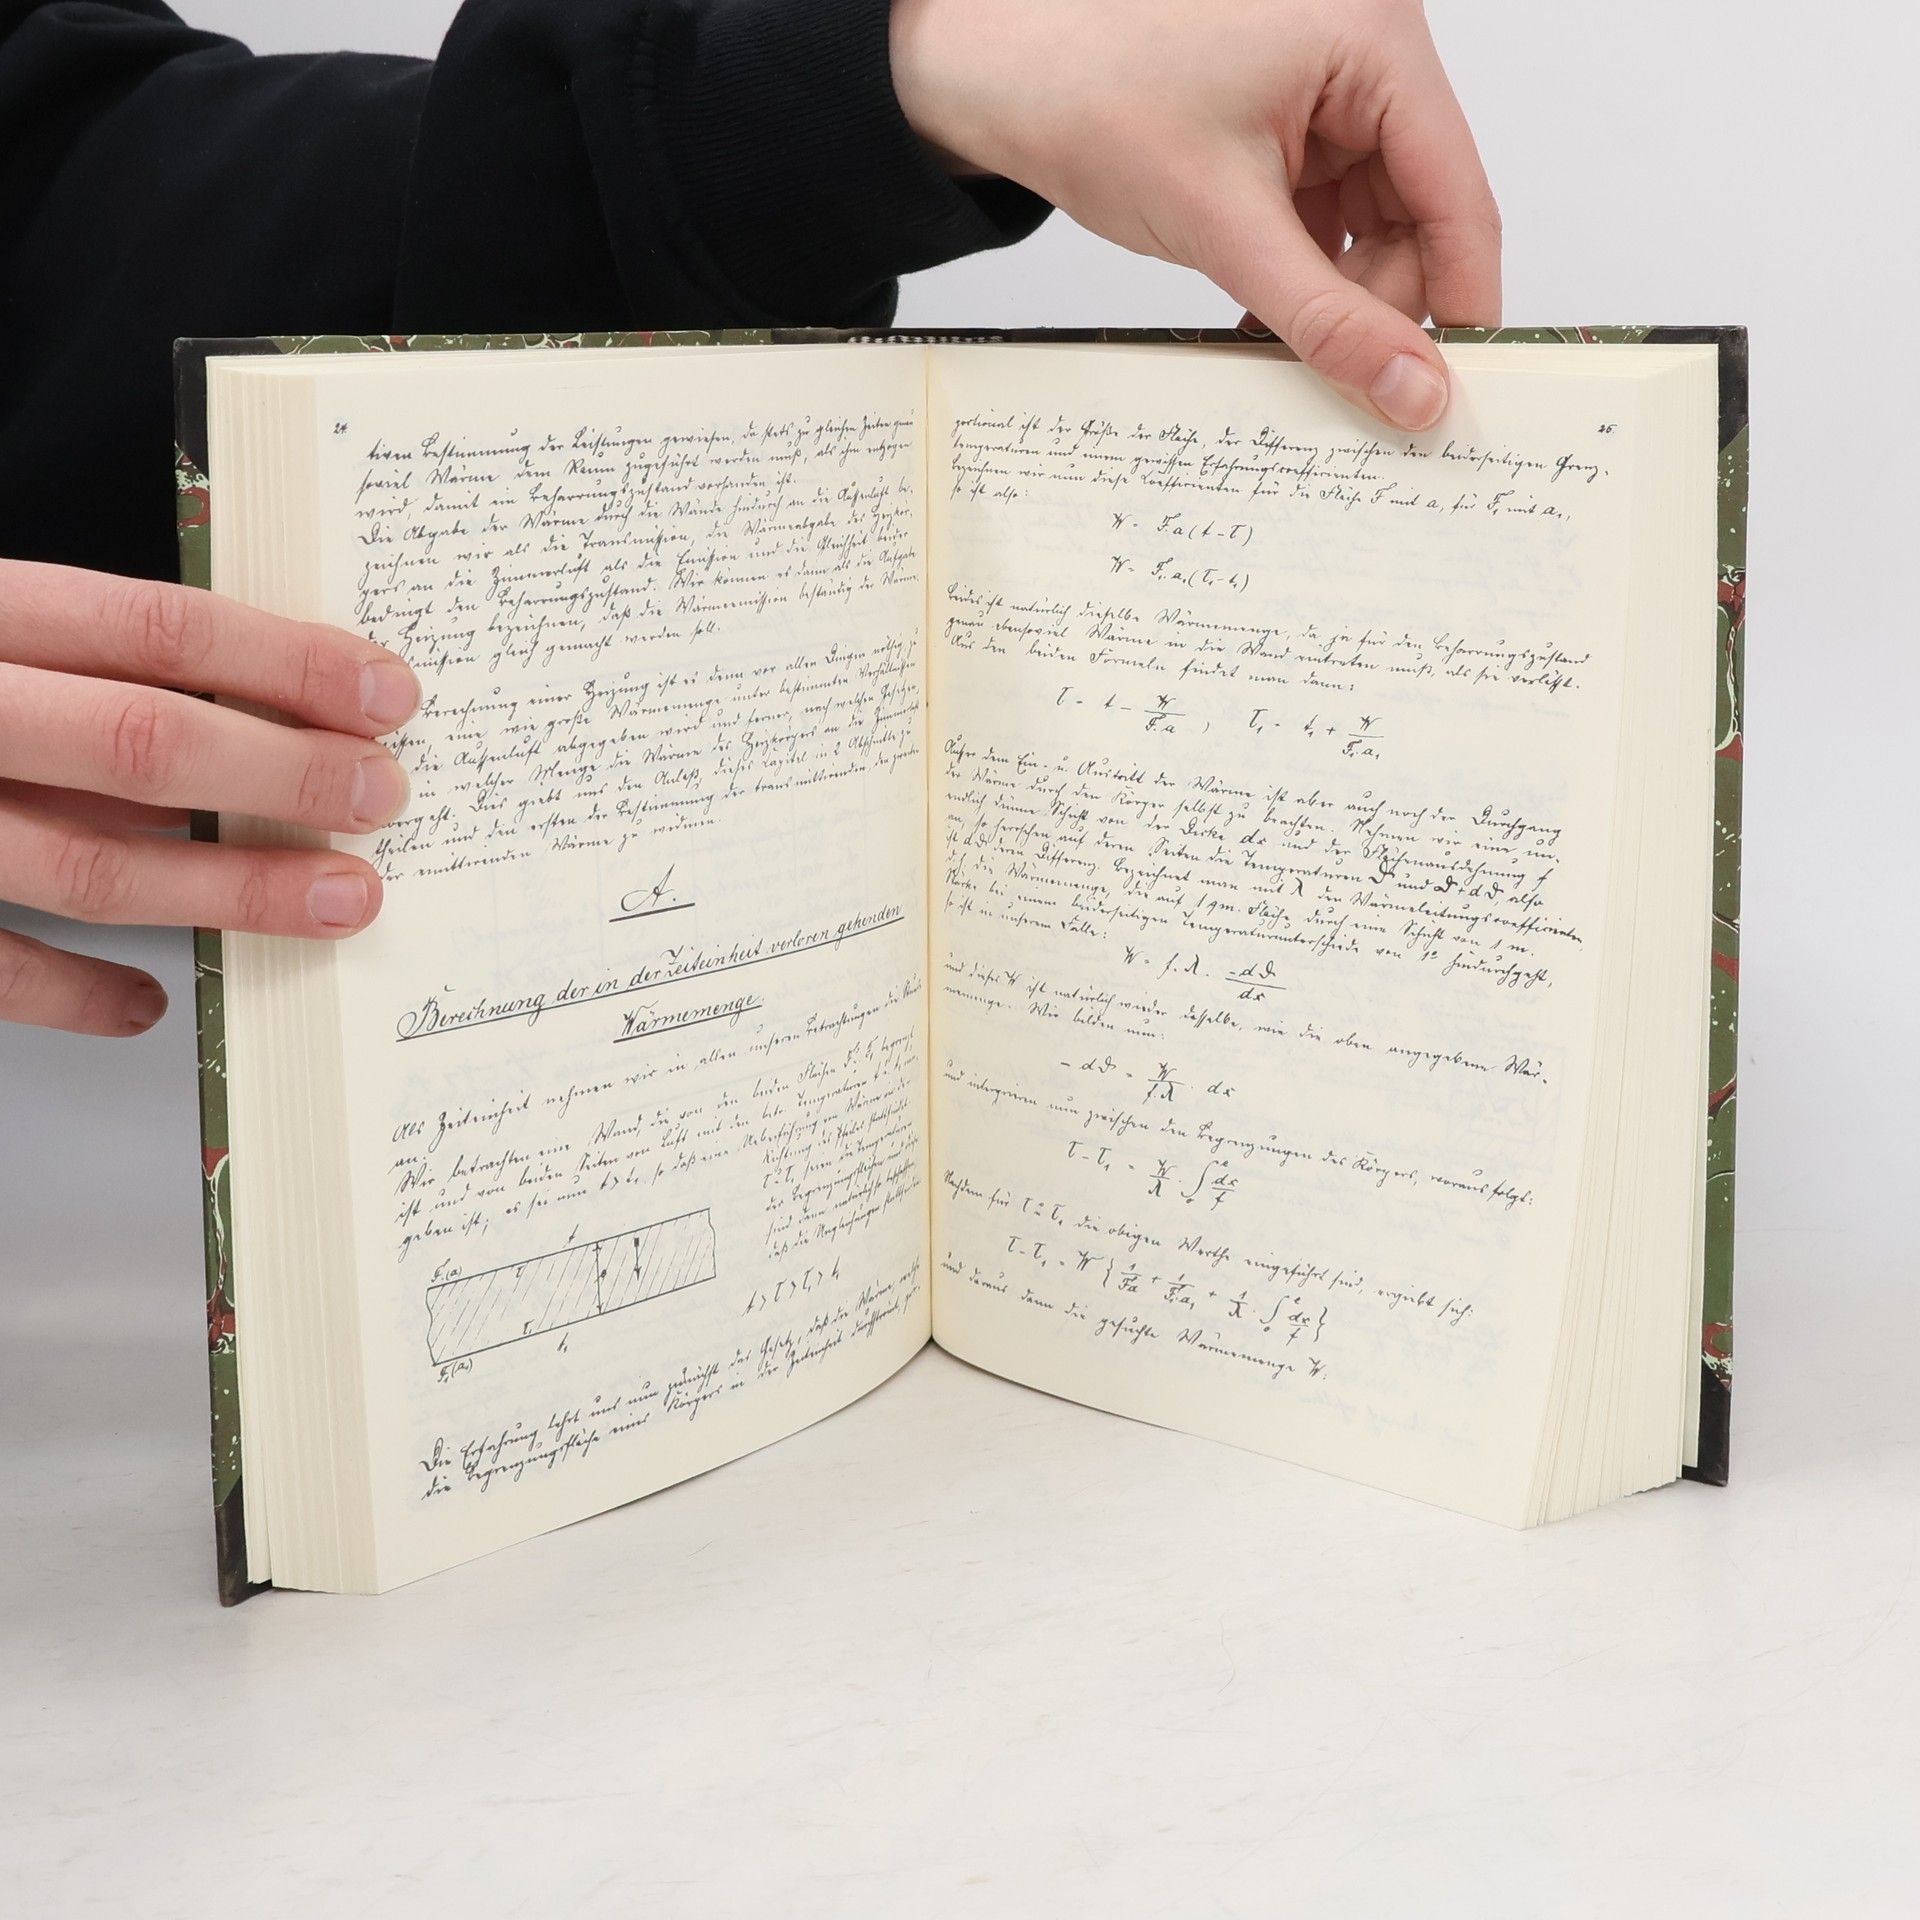 24.
tiven Bestimmung der Leistungen gewiesen, da stets zu gleichen Zeiten genau
soviel Wärme dem Raum zugeführt werden muß, als ihm entzogen
wird, damit ein Beharrungszustand vorhanden ist.
Die Abgabe der Wärme durch die Wände hindurch an die Außenluft be-
zeichnen wir als die Transmission, die Wärmeabgabe des Heizkör-
pers an die Zimmerluft als die Emission und die Gleichheit beider
bedingt den Beharrungszustand. Wir können es dann als die Aufgabe
der Heizung bezeichnen, daß die Wärmeemission beständig der Wärme-
smission gleich gemacht werden soll.
Berechnung einer Heizung ist es denn vor allen Dingen nöthig, zu
wissen, eine wie große Wärmemenge unter bestimmten Verhältnissen
die Außenluft abgegeben wird und ferner, nach welchen Gesetzen,
in welcher Menge die Wärme des Heizkörpers an die Zimmerluft
übergeht. Dies giebt uns den Anlaß, dieses Capitel in 2 Abschnitte zu
theilen und den ersten der Bestimmung der transmittirenden, den zweiten
der emittirenden Wärme zu widmen.
A.
Berechnung der in der Zeiteinheit verloren gehenden
Wärmemenge.
Als Zeiteinheit nehmen wir in allen unseren Betrachtungen die Stunde
an.
Wir betrachten eine Wand, die von den beiden Flächen F u. F₁ begrenzt
ist und von beiden Seiten von Luft mit den betr. Temperaturen t u. t₁ um-
geben ist; es sei nun t > t₁, so daß eine Ueberführung von Wärme in der
Richtung des Pfeiles stattfindet.
τ u. τ₁ seien die Temperaturen
der Begrenzungsflächen und diese
sind dann natürlich so beschaffen,
daß die Ungleichungen stattfinden
t > τ > τ₁ > t₁
F.(a)
t
τ
τ₁
t₁
F₁(a₁)
Die Erfahrung lehrt uns nun zunächst das Gesetz, daß die Wärme, welche
die Begrenzungsfläche eines Körpers in der Zeiteinheit durchströmt, pro-
25.
portional ist der Größe der Fläche, der Differenz zwischen den beiderseitigen Grenz-
temperaturen und einem gewissen Erfahrungscoefficienten.
Bezeichnen wir nun diese Coefficienten für die Fläche F mit a, für F₁ mit a₁,
so ist also:
W = F.a (t - τ)
W = F₁.a₁ (τ₁ - t₁)
Beides ist natürlich dieselbe Wärmemenge, da ja für den Beharrungszustand
genau ebensoviel Wärme in die Wand eintreten muß, als sie verläßt.
Aus den beiden Formeln findet man dann:
τ = t - W/F.a , τ₁ = t₁ + W/F₁.a₁
Außer dem Ein- u. Austritt der Wärme ist aber auch noch der Durchgang
der Wärme durch den Körper selbst zu beachten. Nehmen wir eine un-
endlich dünne Schicht von der Dicke dx und der Flächenausdehnung f
an, so herrschen auf deren Seiten die Temperaturen ϑ und ϑ + dϑ, also
ist dϑ deren Differenz. Bezeichnet man mit λ den Wärmeleitungscoefficienten,
d.h. die Wärmemenge, die auf 1 qm. Fläche durch eine Schicht von 1 m.
Stärke bei einem beiderseitigen Temperaturunterschiede von 1° hindurchgeht,
so ist in unserem Falle:
W = f.λ. -dϑ/dx
und dieses W ist natürlich wieder dasselbe, wie die oben angegebene Wär-
memenge. Wir bilden nun:
- dϑ = W/f.λ . dx
und integriren nun zwischen den Begrenzungen des Körpers, woraus folgt:
τ - τ₁ = W/λ . ∫₀ᵉ dx/f
Nachdem für τ u. τ₁ die obigen Werthe eingeführt sind, ergiebt sich:
τ - τ₁ = W { 1/Fa + 1/F₁a₁ + 1/λ . ∫₀ᵉ dx/f }
und daraus dann die gesuchte Wärmemenge W: